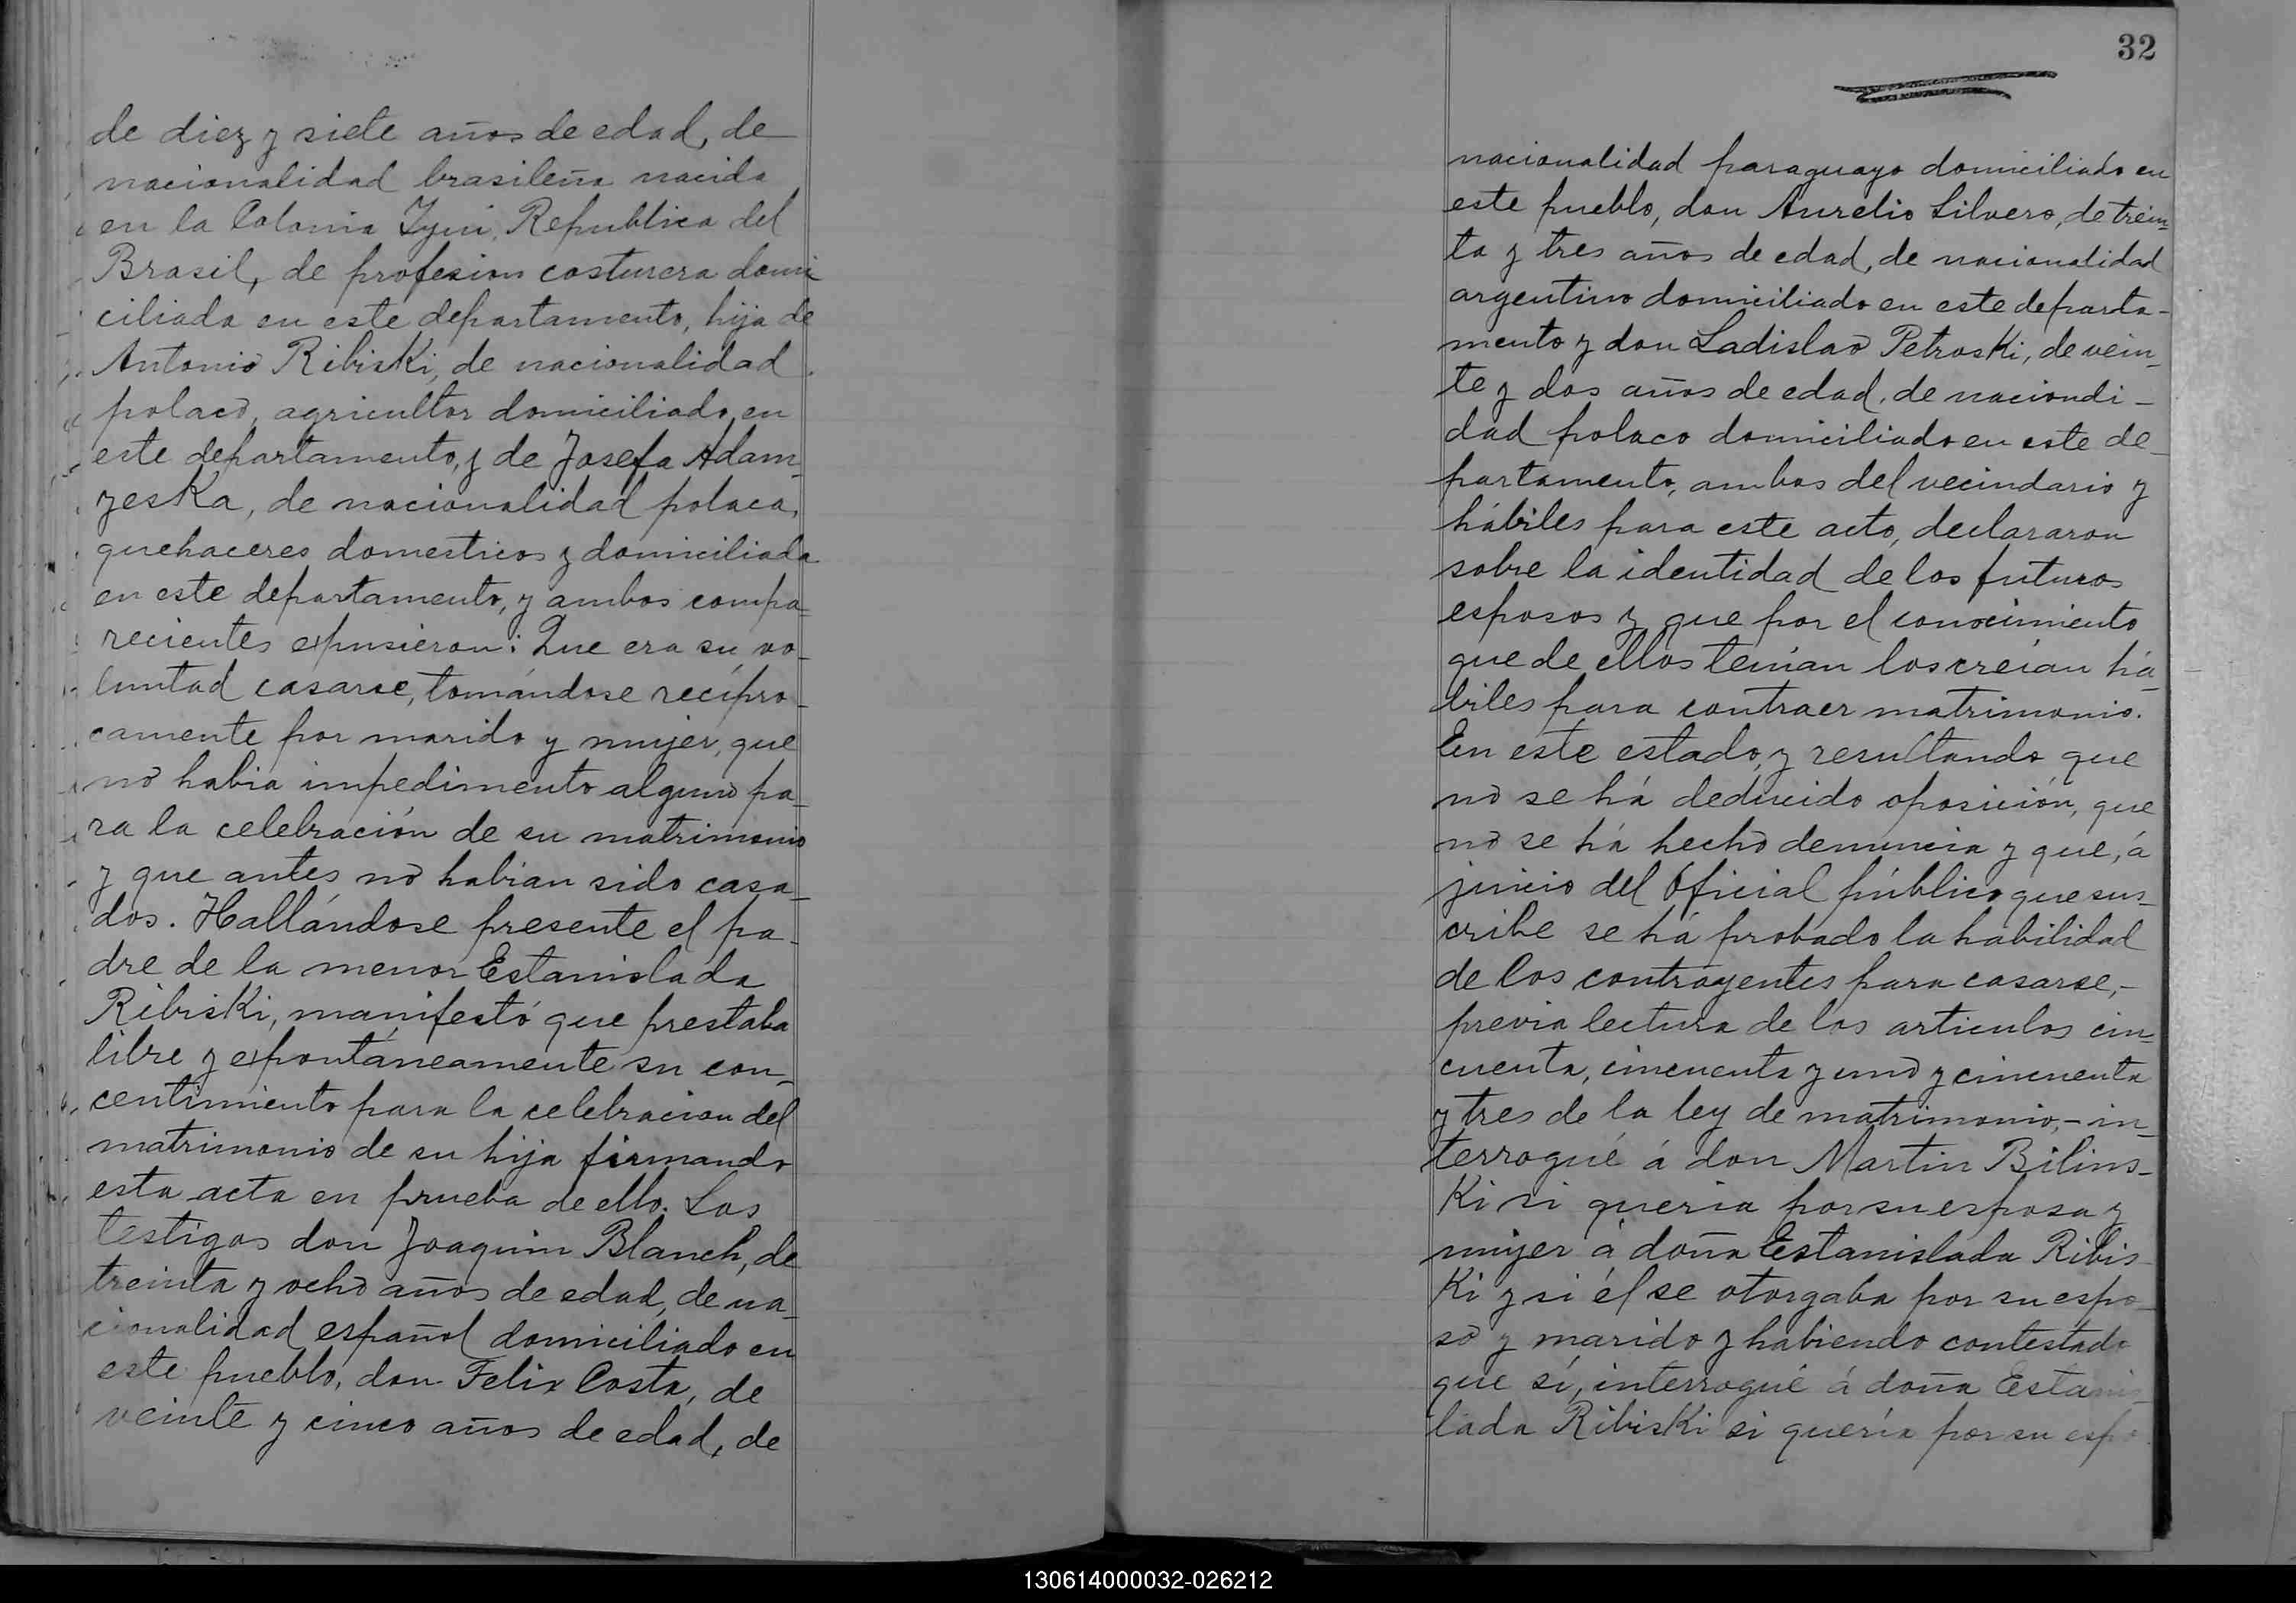 de diez y siete años de edad, de
nacionalidad brasileña nacida
en la Colonia Yjui, Republica del
Brasil, de profesion costurera domi
ciliada en este departamento, hija de
Antonio Ribiski, de nacionalidad
polaco, agricultor domiciliado en
este departamento, y de Josefa Adam-
zeska, de nacionalidad polaca,
quehaceres domesticos y domiciliada
en este departamento, y ambos compa-
recientes expusieron: Que era su vo-
luntad casarse, tomándose recípro-
camente por marido y mujer, que
no habia impedimento alguno pa-
ra la celebración de su matrimonio
y que antes no habian sido casa-
dos. Hallándose presente el pa-
dre de la menor Estanislada
Ribiski, manifestó que prestaba
libre y expontáneamente su con-
centimiento para la celebracion del
matrimonio de su hija firmando
esta acta en prueba de ello. Los
testigos don Joaquin Blanch, de
treinta y ocho años de edad, de na-
cionalidad español domiciliado en
este pueblo, don Felix Costa, de
veinte y cinco años de edad, de
32
nacionalidad paraguayo domiciliado en
este pueblo, don Aurelio Silvero, de trein-
ta y tres años de edad, de nacionalidad
argentino domiciliado en este departa-
mento y don Ladislao Petroski, de vein-
te y dos años de edad, de naciondi-
dad polaco domiciliado en este de-
partamento, ambos del vecindario y
hábiles para este acto, declararon
sobre la identidad de los futuros
esposos y que por el conocimiento
que de ellos tenían los creían há-
biles para contraer matrimonio.
En este estado, y resultando que
no se há deducido oposición, que
no se há hecho denuncia y que, á
juicio del Oficial público que sus-
cribe se há probado la habilidad
de los contrayentes para casarse,-
previa lectura de los articulos cin-
cuenta, cincuenta y uno y cincuenta
y tres de la ley de matrimonio,- in-
terrogué á don Martin Bilins-
Ki si queria por su esposa y
mujer á doña Estanislada Ribis-
Ki y si él se otorgaba por su espo-
so y marido y habiendo contestado
que sí, interrogué á doña Estanis-
lada Ribiski si quería por su espo
130614000032-026212